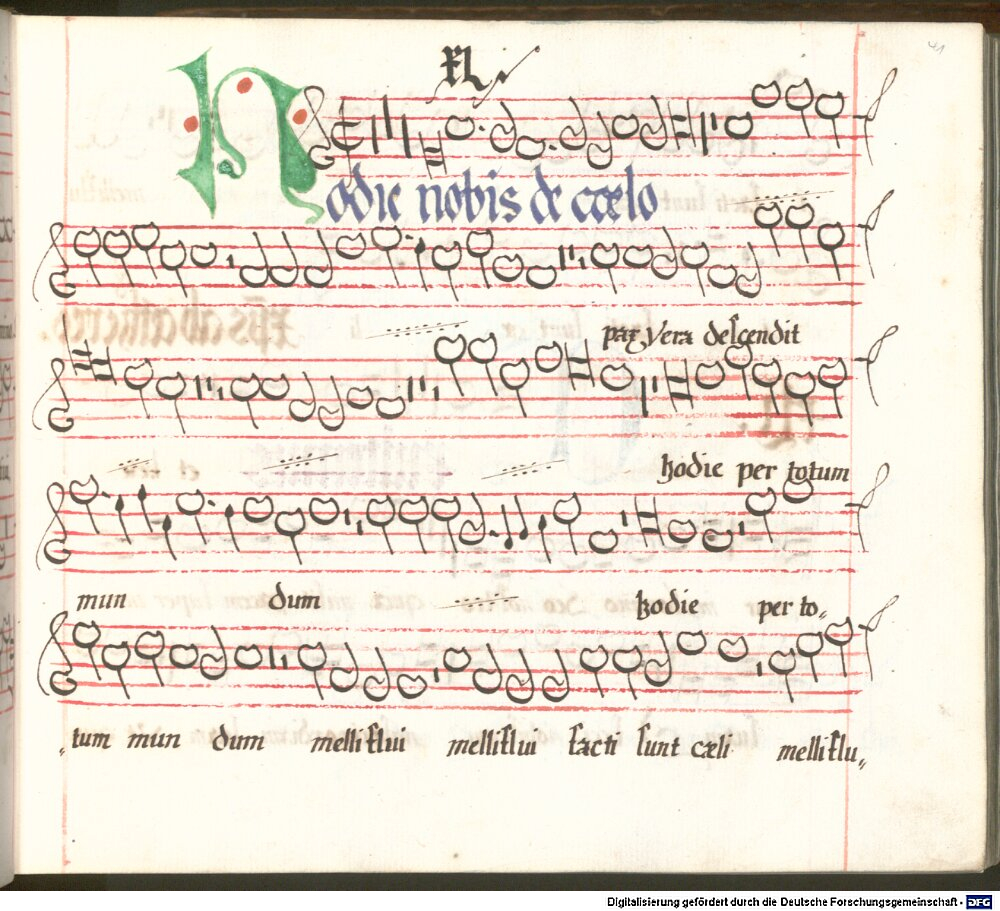 XL
41
Hodie nobis de cœlo
pax vera descendit
hodie per totum
mun dum hodie per to,
,,tum mun dum melliflui melliflui facti sunt cæli melliflu,,
Digitalisierung gefördert durch die Deutsche Forschungsgemeinschaft - DFG